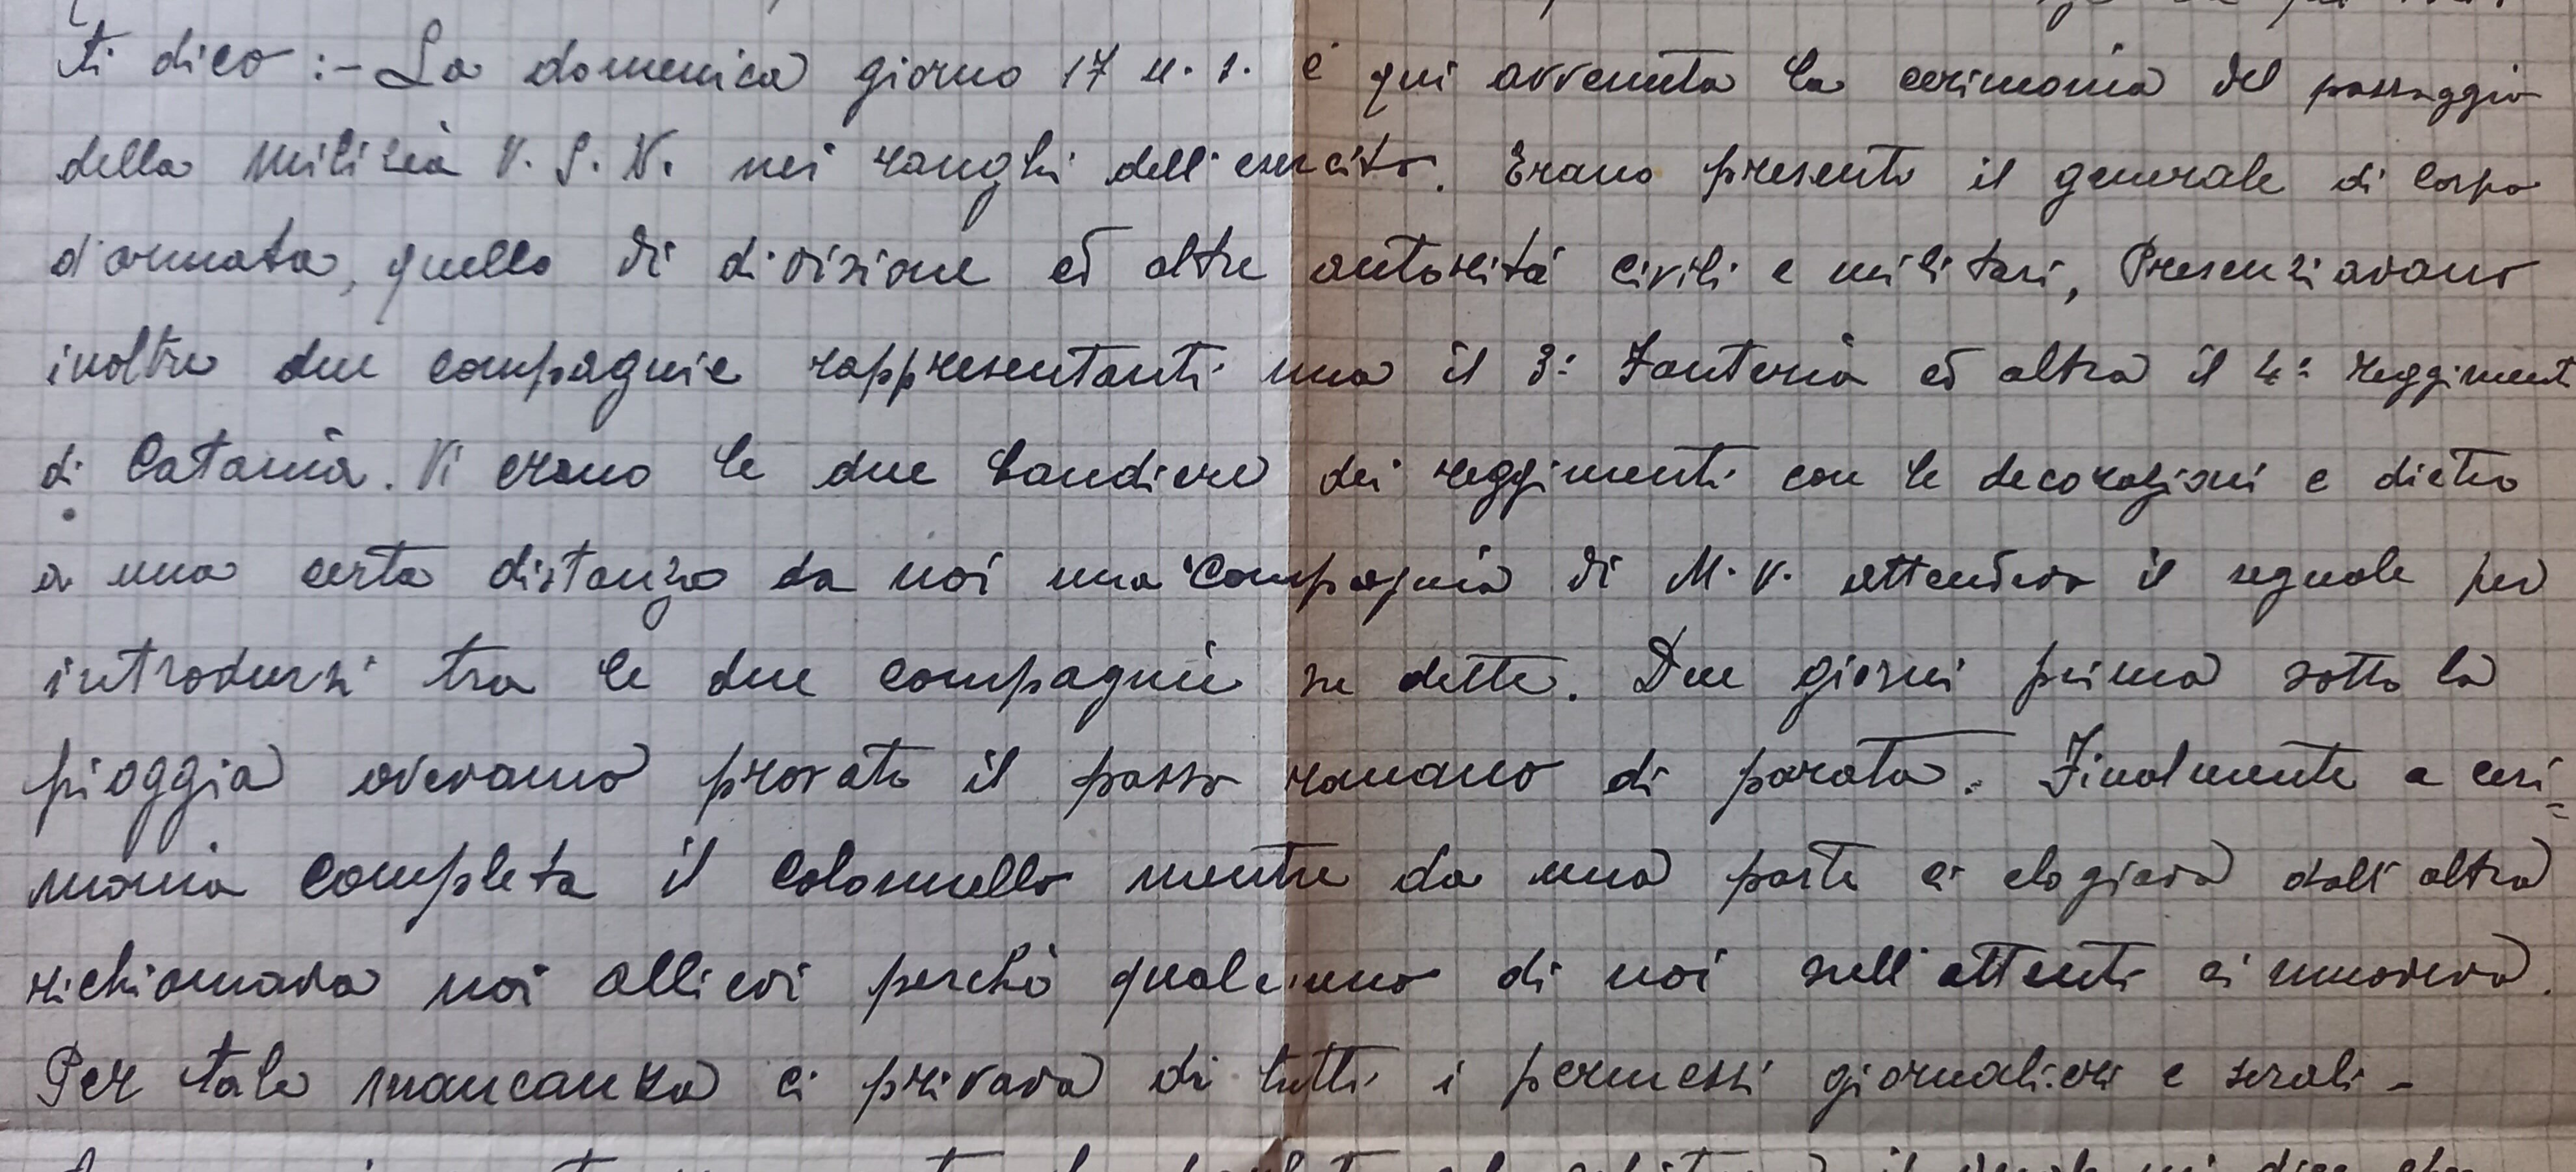 ti dico :- La domenica giorno 17 u. s. è qui avvenuta la cerimonia del passaggio
della Milizia V. S. N. nei ranghi dell'esercito. Erano presenti il generale di Corpo
d'armata, quello di divisione ed altre autorità civili e militari, Presenziavano
inoltre due compagnie rappresentanti una il 3º Fanteria ed altra il 4º reggiment
di Catania. Vi erano le due bandiere dei reggimenti con le decorazioni e dietro
a una certa distanza da noi una Compagnia di M. V. attendeva il segnale per
introdursi tra le due compagnie su dette. Due giorni prima sotto la
pioggia avevamo provato il passo romano di parata. Finalmente a ceri=
monia completa il Colonnello mentre da una parte ci elogiava dall'altra
richiamava noi allievi perchè qualcuno di noi sull'attenti si muoveva.
Per tale mancanza ci privava di tutti i permessi giornalieri e serali -